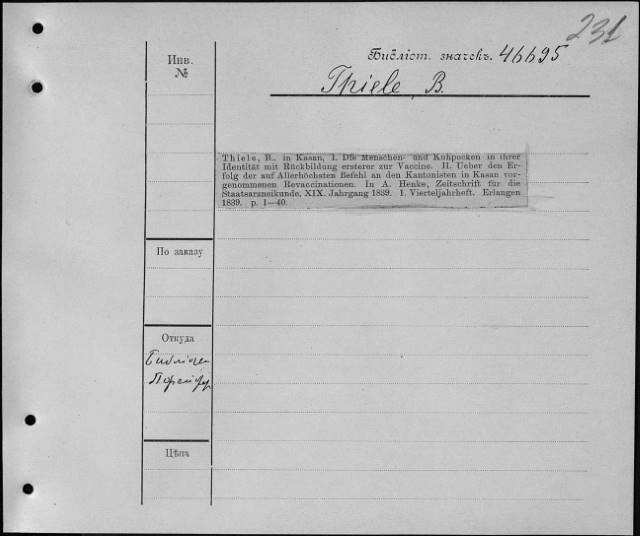 231
Инв.
№
Библіот. значекъ. 46695
Thiele, B.
Thiele, B., in Kasan, I. Die Menschen- und Kuhpocken in ihrer
Identität mit Rückbildung ersterer zur Vaccine. II. Ueber den Er-
folg der auf Allerhöchsten Befehl an den Kantonisten in Kasan vor-
genommenen Revaccinationen. In A. Henke, Zeitschrift für die
Staatsarzneikunde, XIX. Jahrgang 1839. I. Vierteljahrheft. Erlangen
1839. p. 1—40.
По заказу
Откуда
Цѣна